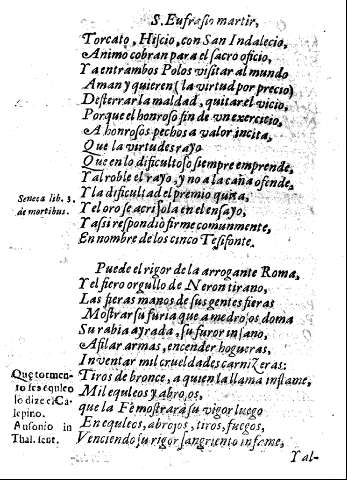 S. Eufrasio martir,
Torcato, Hiscio, con San Indalecio,
Animo cobran para el sacro oficio,
Y a entrambos Polos visitar al mundo
Aman y quieren (la virtud por precio)
Desterrar la maldad, quitar el vicio,
Porque el honroso fin de un exercicio,
A honrosos pechos a valor incita,
Que la virtud es rayo
Que en lo dificultoso siempre emprende,
Y al roble el rayo, y no a la caña ofende,
Seneca lib. 3.
de mortibus.
Y la dificultad del premio quita,
Y el oro se acrisola en el ensayo,
Y assi respondio firme comunmente,
En nombre de los cinco Tesifonte.
Puede el rigor de la arrogante Roma,
Y el fiero orgullo de Neron tirano,
Las fieras manos de sus gentes fieras
Mostrar su furia que a medrosos doma
Su rabia ayrada, su furor insano,
Afilar armas, encender hogueras,
Inventar mil crueldades carnizeras:
Que tormen-
to sea equleo
lo dize el Ca-
lepino.
Ausonio in
Thal. sent.
Tiros de bronce, a quien la llama inflame,
Mil equleos y abrojos,
que la Fè mostrarà su vigor luego
En equleos, abrojos, tiros, fuegos,
Venciendo su rigor sangriento infame,
Y al-